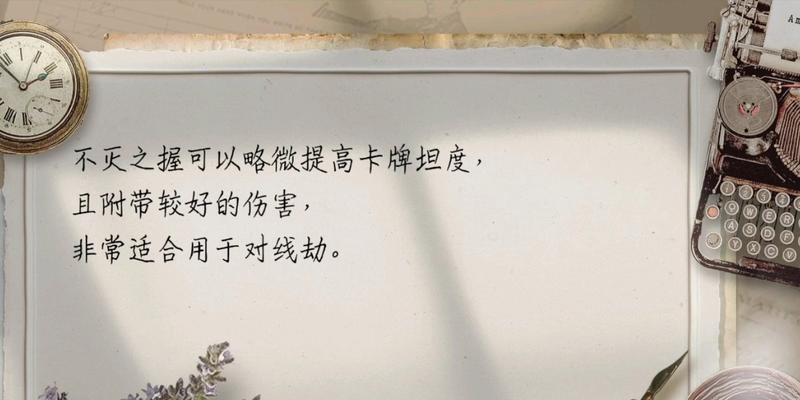 不灭之握可以略微提高卡牌坦度，
且附带较好的伤害，
非常适合用于对线劫。